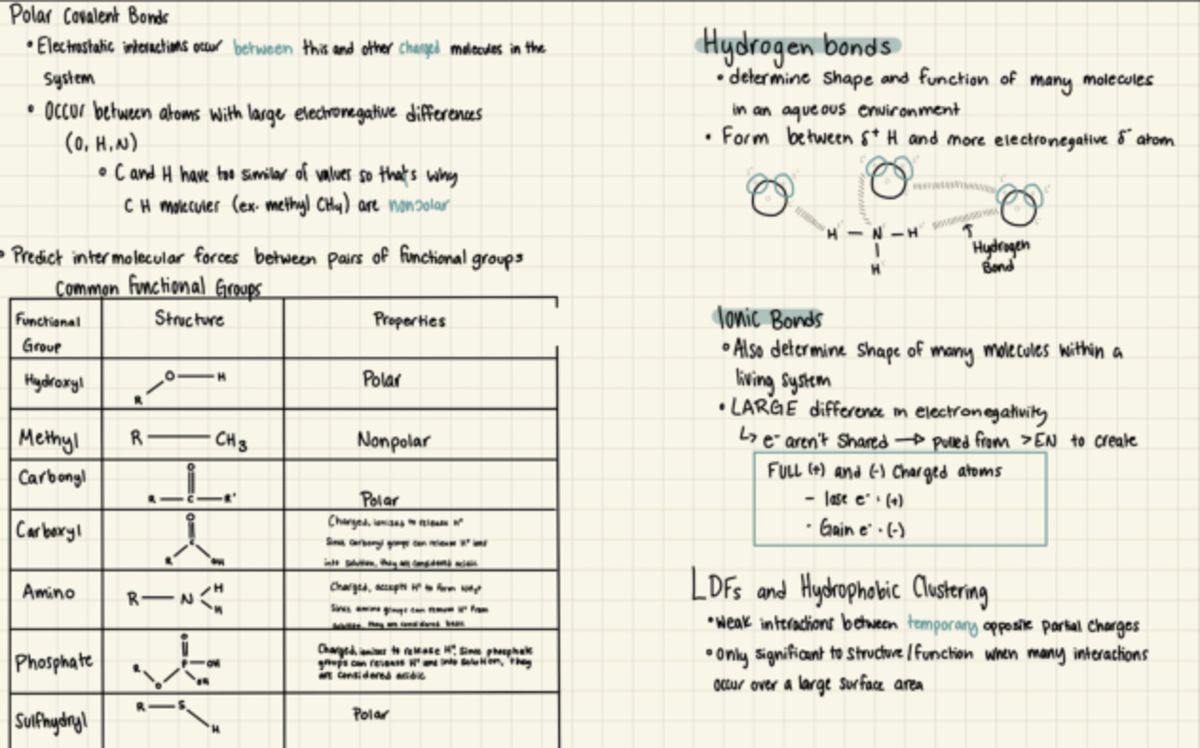 Polar Covalent Bonds
• Electrostatic interactions occur between this and other charged molecules in the
system
• Occur between atoms with large electronegative differences
(O, H, N)
• C and H have too similar of values so that's why
C H molecules (ex. methyl CH4) are nonpolar
• Predict intermolecular forces between pairs of functional groups
Common Functional Groups
Functional Group Structure Properties
Hydroxyl R O — H Polar
Methyl R — CH3 Nonpolar
Carbonyl O R — C — R' Polar
Carboxyl O R C OH Charged, ionizes to release H+
Since carbonyl groups can release H+ ions
into solution, they are considered acidic
Amino R — N H H Charged, accepts H+ to form NH3+
Since amino groups can remove H+ from
solution, they are considered basic
Phosphate O R O P — OH OH Charged, ionizes to release H+. Since phosphate
groups can release H+ ions into solution, they
are considered acidic
Sulfhydryl R — S H Polar
Hydrogen bonds
• determine shape and function of many molecules
in an aqueous environment
• Form between δ+ H and more electronegative δ- atom
H — N — H
H
Hydrogen
Bond
Ionic Bonds
• Also determine shape of many molecules within a
living system
• LARGE difference in electronegativity
↳ e- aren't shared → pulled from >EN to create
FULL (+) and (-) charged atoms
- lose e- · (+)
· Gain e- · (-)
LDFs and Hydrophobic Clustering
• Weak interactions between temporary opposite partial charges
• only significant to structure/function when many interactions
occur over a large surface area